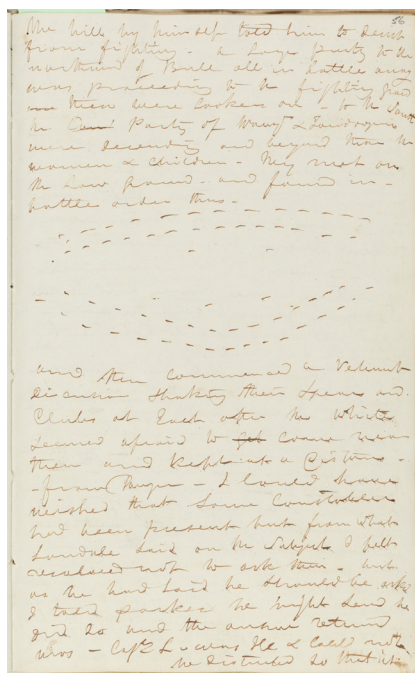 56
the hills by himself told him to desist
from fighting - a large party to the
northward of Bull all in battle array
was proceeding to the fighting ground
then were lookers on - to the South
the Party of Wavg &
were descending and beyond them the
women & children - They met on
the Low ground - and formed in -
battle order thus -
and then commenced a Vehement
discussion shaking their Spears and
Clubs at Each other the Whites
seemed afraid to come near
them and kept at a distance -
- from - I could have
wished that some Constables
had been present but from what
Lonsdale said on the Subject I felt
resolved not to ask them - but
as he had said he should be asked
I told Parker he might send he
did so and the answer returned
was - Capt L was Ill & could not
be disturbed so that it